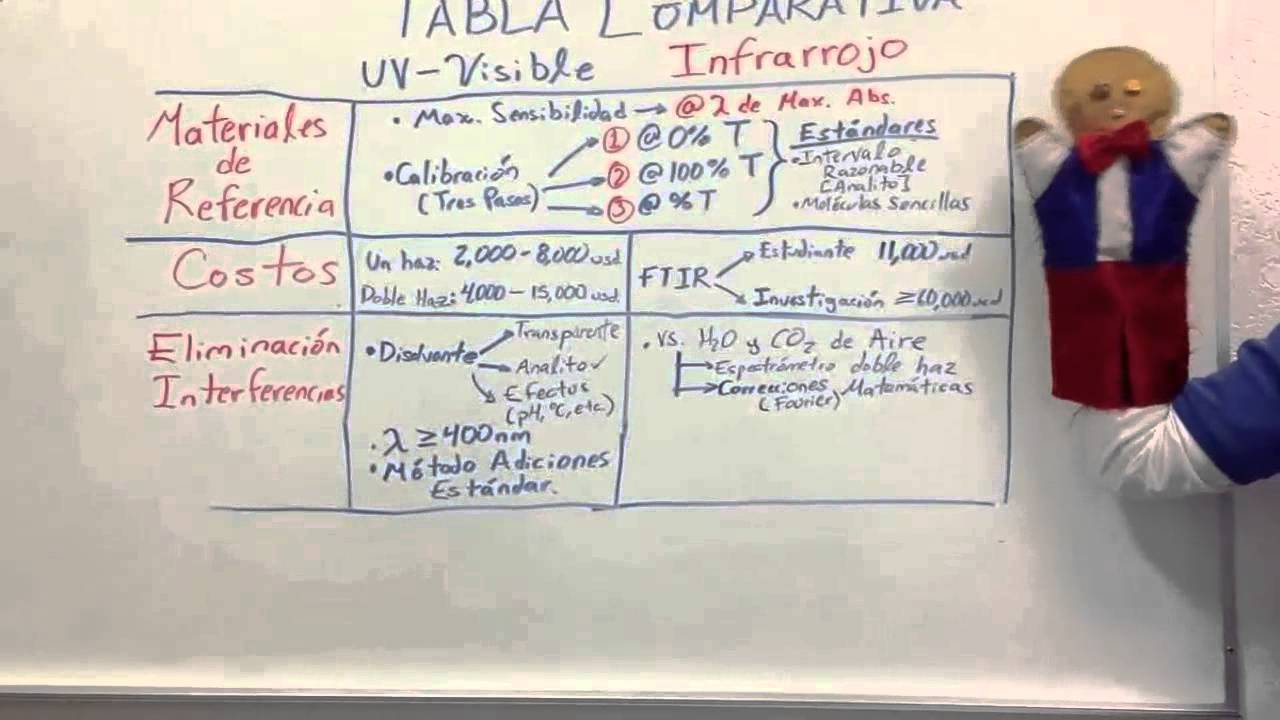 TABLA COMPARATIVA
UV-Visible Infrarrojo
Materiales
de
Referencia
• Max. Sensibilidad → @ λ de Max. Abs.
• Calibración
(Tres Pasos)
① @ 0% T
② @ 100% T
③ @ % T
Estándares
• Intervalo
Razonable
[Analito]
• Moléculas Sencillas
Costos
Un haz: 2,000 - 8,000 usd
Doble Haz: 4,000 - 15,000 usd.
FTIR
Estudiante 11,000 usd
Investigación ≥ 60,000 usd
Eliminación
Interferencias
• Disolvente
Transparente
Analito ✓
Efectos
(pH, °C, etc.)
• λ ≥ 400nm
• Método Adiciones
Estándar.
• vs. H₂O y CO₂ de Aire
Espectrómetro doble haz
Correcciones Matemáticas
(Fourier)